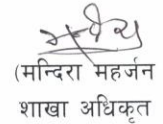 (मन्दिरा महर्जन
शाखा अधिकृत